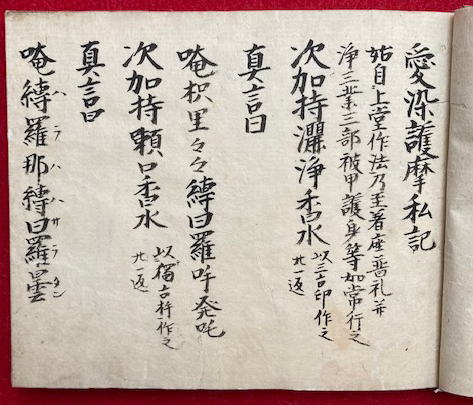 愛染護摩私記
始自上堂作法乃至著座普礼并
浄三業三部被甲護身等如常行之
次加持灑浄香水 以三古印作之 廿一返
真言曰
唵枳里々々縛曰羅吽発吒
次加持嗽口香水 以独古杵作之 廿一返
真言曰
唵縛羅那縛曰羅曇
ハラハハサラタン